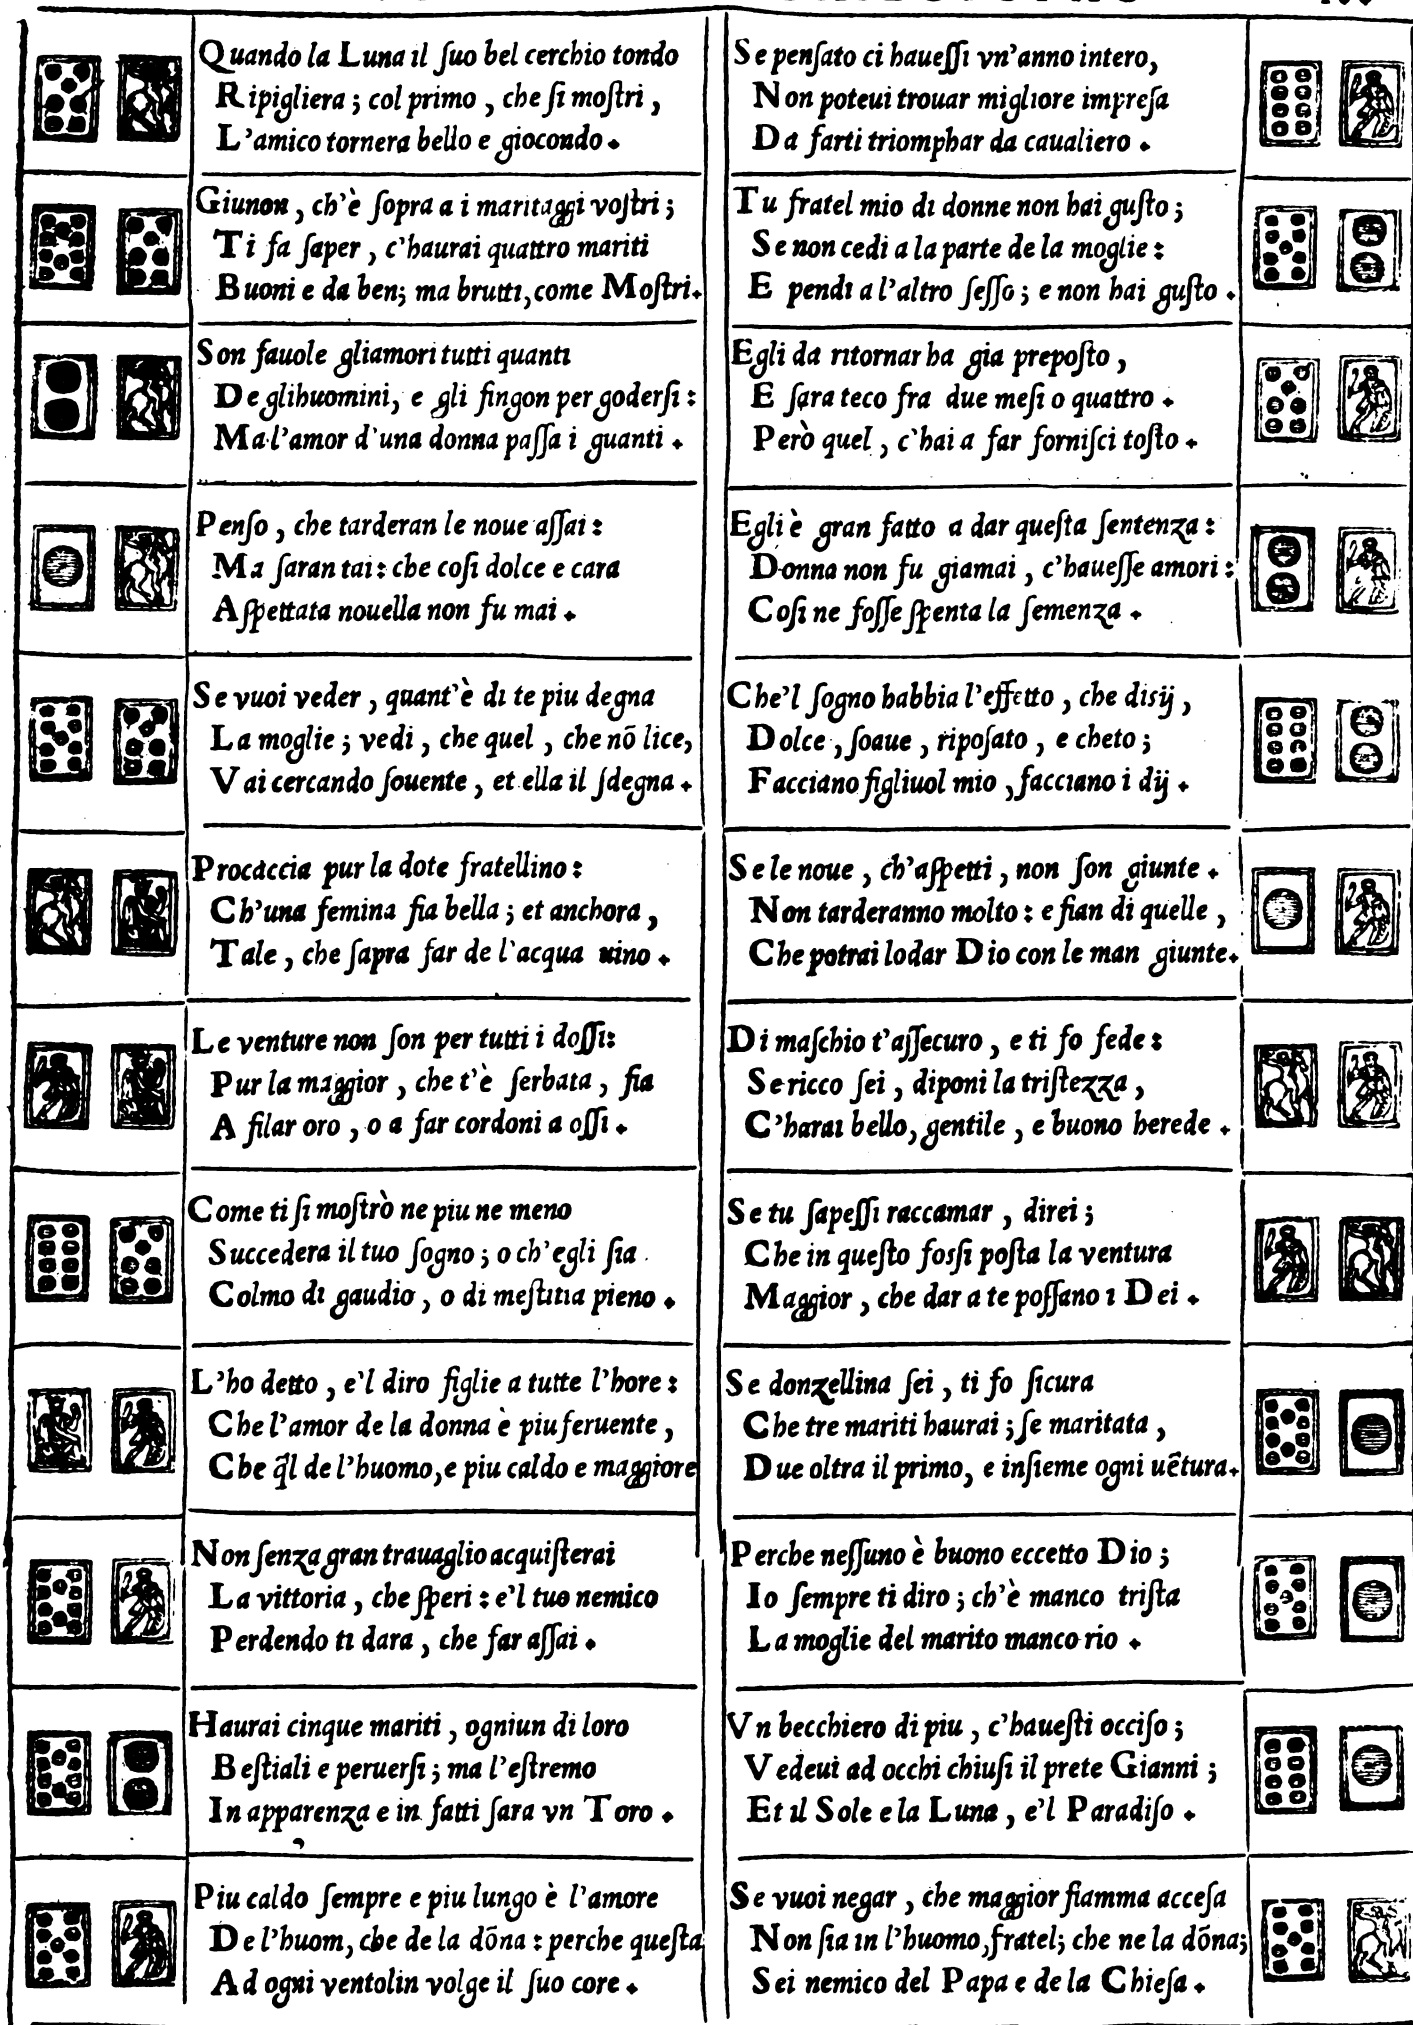 Quando la Luna il ſuo bel cerchio tondo
Ripigliera; col primo, che ſi moſtri,
L'amico tornera bello e giocondo.
Giunon, ch'è ſopra a i maritaggi voſtri;
Ti fa ſaper, c'haurai quattro mariti
Buoni e da ben; ma brutti, come Moſtri.
Son fauole gliamori tutti quanti
De glihuomini, e gli fingon per goderſi:
Ma l'amor d'una donna paſſa i guanti.
Penſo, che tarderan le noue aſſai:
Ma ſaran tai: che coſi dolce e cara
Aſpettata nouella non fu mai.
Se vuoi veder, quant'è di te piu degna
La moglie; vedi, che quel, che nō lice,
Vai cercando ſouente, et ella il ſdegna.
Procaccia pur la dote fratellino:
Ch'una femina fia bella; et anchora,
Tale, che ſapra far de l'acqua uino.
Le venture non ſon per tutti i doſſi:
Pur la maggior, che t'è ſerbata, fia
A filar oro, o a far cordoni a oſſi.
Come ti ſi moſtrò ne piu ne meno
Succedera il tuo ſogno; o ch'egli ſia
Colmo di gaudio, o di meſtitia pieno.
L'ho detto, e'l diro figlie a tutte l'hore:
Che l'amor de la donna è piu feruente,
Che q̃l de l'huomo, e piu caldo e maggiore
Non ſenza gran trauaglio acquiſterai
La vittoria, che ſperi: e'l tuo nemico
Perdendo ti dara, che far aſſai.
Haurai cinque mariti, ogniun di loro
Beſtiali e peruerſi; ma l'eſtremo
In apparenza e in fatti ſara vn Toro.
Piu caldo ſempre e piu lungo è l'amore
De l'huom, che de la dōna: perche queſta
Ad ogni ventolin volge il ſuo core.
Se penſato ci haueſſi vn'anno intero,
Non poteui trouar migliore impreſa
Da farti triomphar da caualiero.
Tu fratel mio di donne non hai guſto;
Se non cedi a la parte de la moglie:
E pendi a l'altro ſeſſo; e non hai guſto.
Egli da ritornar ha gia prepoſto,
E ſara teco fra due meſi o quattro.
Però quel, c'hai a far forniſci toſto.
Egli è gran fatto a dar queſta ſentenza:
Donna non fu giamai, c'haueſſe amori:
Coſi ne foſſe ſpenta la ſemenza.
Che'l ſogno habbia l'effetto, che disij,
Dolce, ſoaue, ripoſato, e cheto;
Facciano figliuol mio, facciano i dij.
Se le noue, ch'aſpetti, non ſon giunte.
Non tarderanno molto: e fian di quelle,
Che potrai lodar Dio con le man giunte.
Di maſchio t'aſſecuro, e ti fo fede:
Se ricco ſei, diponi la triſtezza,
C'harai bello, gentile, e buono herede.
Se tu ſapeſſi raccamar, direi;
Che in queſto fosſi poſta la ventura
Maggior, che dar a te poſſano i Dei.
Se donzellina ſei, ti fo ſicura
Che tre mariti haurai; ſe maritata,
Due oltra il primo, e inſieme ogni uētura.
Perche neſſuno è buono eccetto Dio;
Io ſempre ti diro; ch'è manco triſta
La moglie del marito manco rio.
Vn becchiero di piu, c'haueſti occiſo;
Vedeui ad occhi chiuſi il prete Gianni;
Et il Sole e la Luna, e'l Paradiſo.
Se vuoi negar, che maggior fiamma acceſa
Non ſia in l'huomo, fratel; che ne la dōna;
Sei nemico del Papa e de la Chieſa.